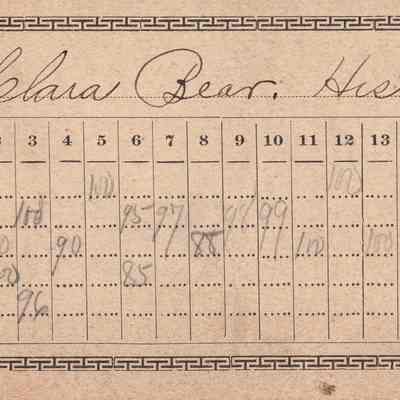 Clara Bear. His
3 4 5 6 7 8 9 10 11 12 13
100 100
100 95 97 99
90 88 100 100
85
96